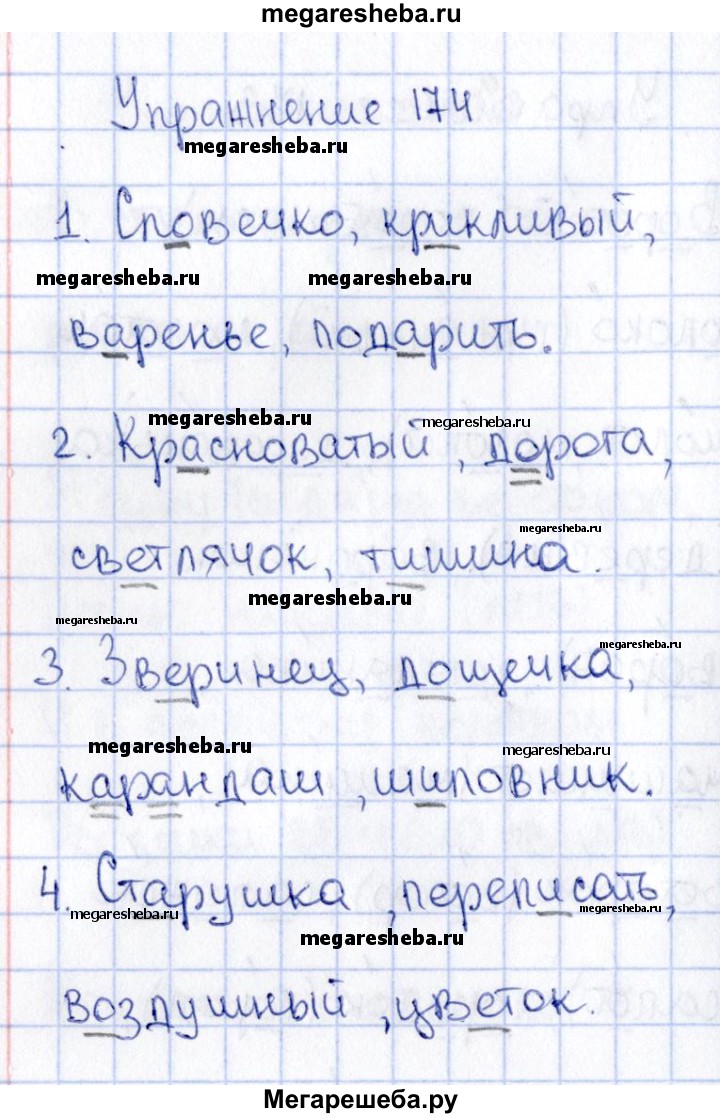 megaresheba.ru
Упражнение 174
megaresheba.ru
1. Словечко, крикливый,
megaresheba.ru megaresheba.ru
варенье, подарить.
megaresheba.ru megaresheba.ru
2. Красноватый, дорога,
megaresheba.ru
светлячок, тишина.
megaresheba.ru megaresheba.ru
megaresheba.ru
3. Зверинец, дощечка,
megaresheba.ru megaresheba.ru
карандаш, шиповник.
4. Старушка, переписать,
megaresheba.ru megaresheba.ru
megaresheba.ru
воздушный, цветок.
Мегарешеба.ру